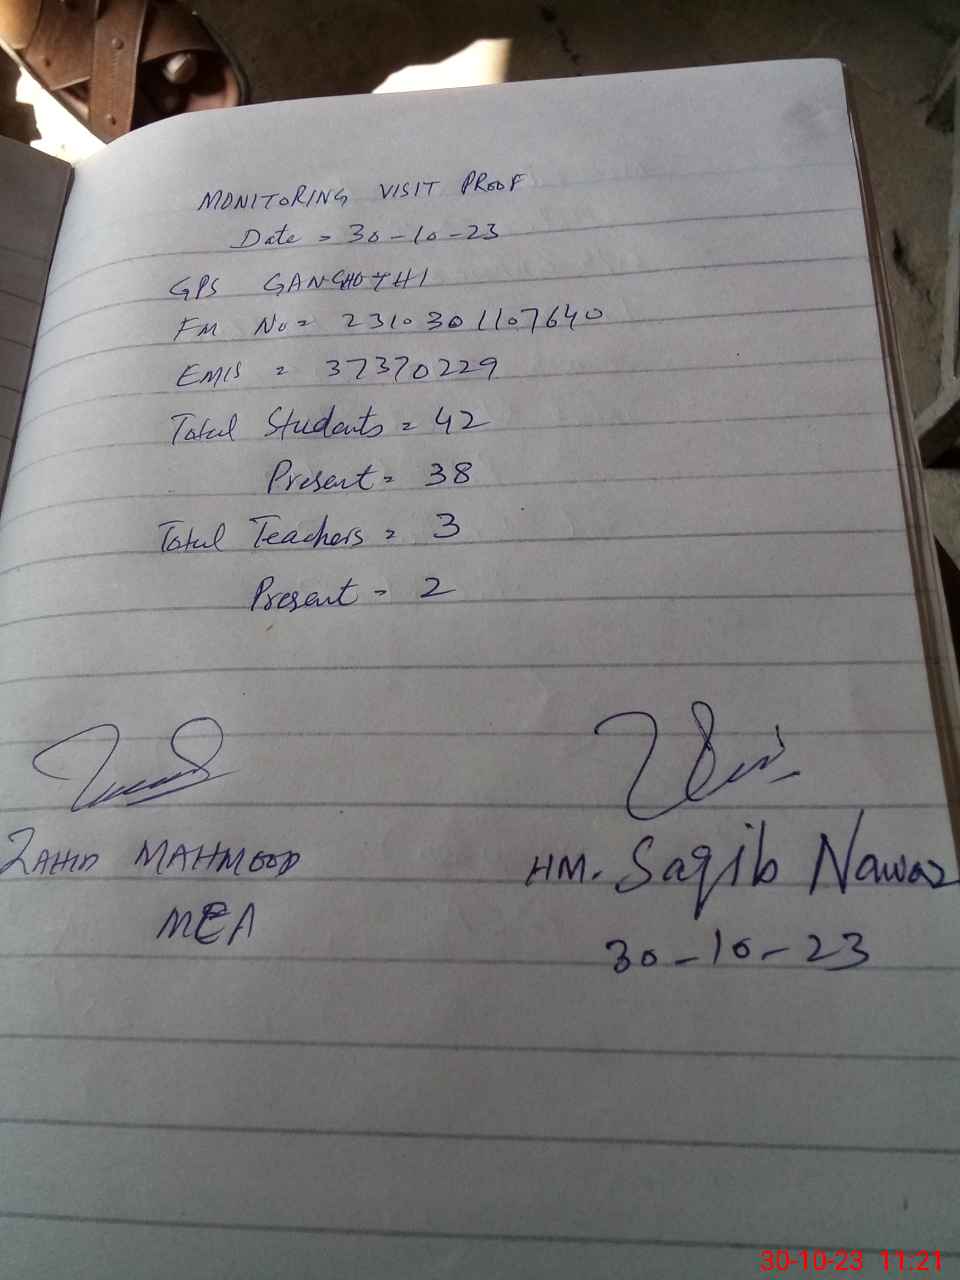 MONITORING VISIT PROOF
Date = 30-10-23
GPS GANGHOTHI
FM No = 2310301107640
EMIS = 37370229
Total Students = 42
Present = 38
Total Teachers = 3
Present - 2
ZAHID MAHMOOD
MEA
HM. Saqib Nawaz
30-10-23
30-10-23 11:21